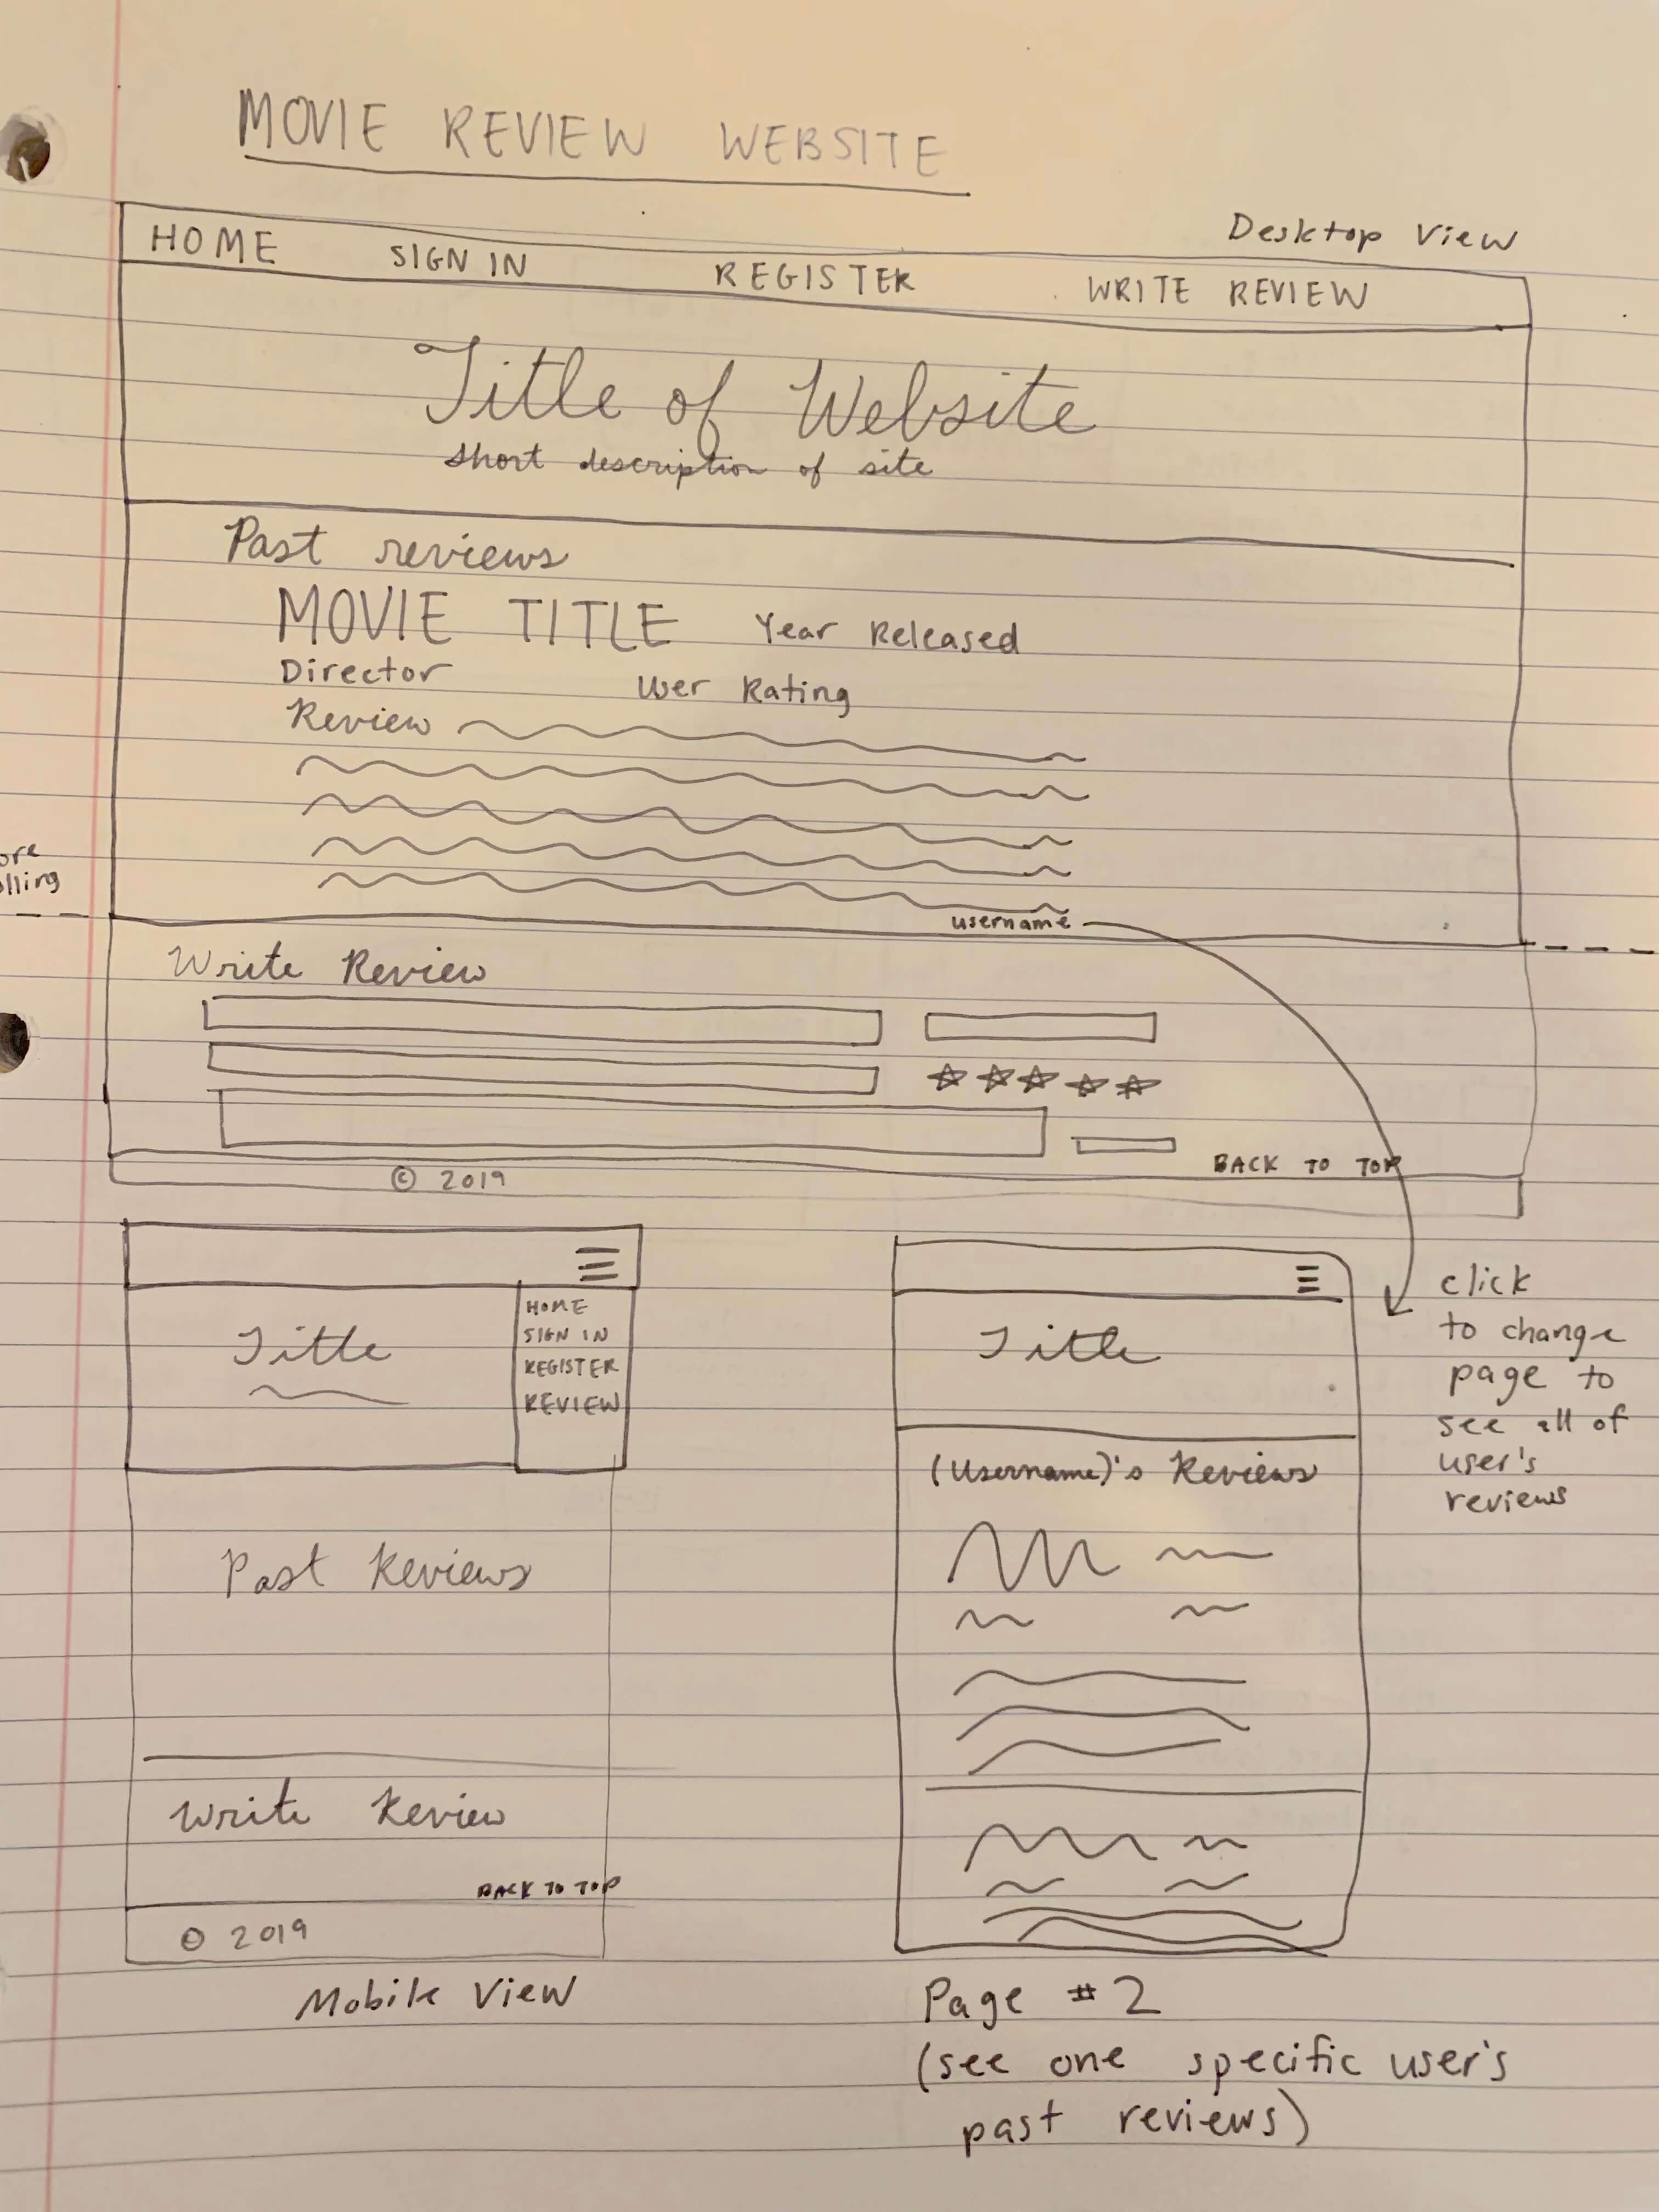 MOVIE REVIEW WEBSITE
Desktop View
HOME SIGN IN REGISTER WRITE REVIEW
Title of Website
short description of site
Past reviews
MOVIE TITLE Year Released
Director User Rating
Review
username
Write Review
BACK TO TOP
© 2019
HOME
SIGN IN
REGISTER
REVIEW
Title
Past Reviews
Write Review
BACK TO TOP
© 2019
Mobile View
Title
(Username)'s Reviews
click
to change
page to
see all of
user's
reviews
Page #2
(see one specific user's
past reviews)